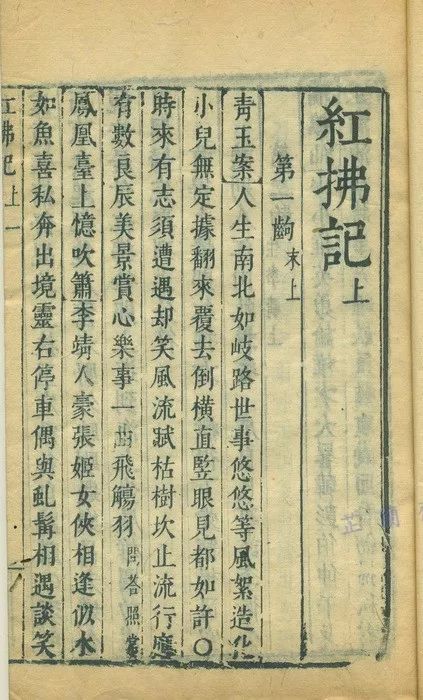 紅拂記上
第一齣末上
青玉案人生南北如岐路世事悠悠等風絮造化
小兒無定據翻來覆去倒橫直竪眼見都如許〇
時來有志須遭遇却笑風流賦枯樹坎止流行應
有數良辰美景賞心樂事一曲飛觴羽問荅照常
鳳凰臺上憶吹簫李靖人豪張姬女俠相逢似水
如魚喜私奔出境靈右停車偶與虬髯相遇談笑
紅拂記上一